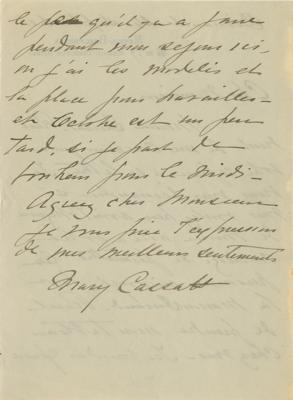 le peu qu'il y a a faire
pendant mon sejour ici,
ou j'ai les modeles et
la place pour travailler -
et Octobre est un peu
tard, si je part de
bonheur pour le midi -
Agreez cher Monsieur
je vous prie l'expression
de mes meilleurs sentements
Mary Cassatt